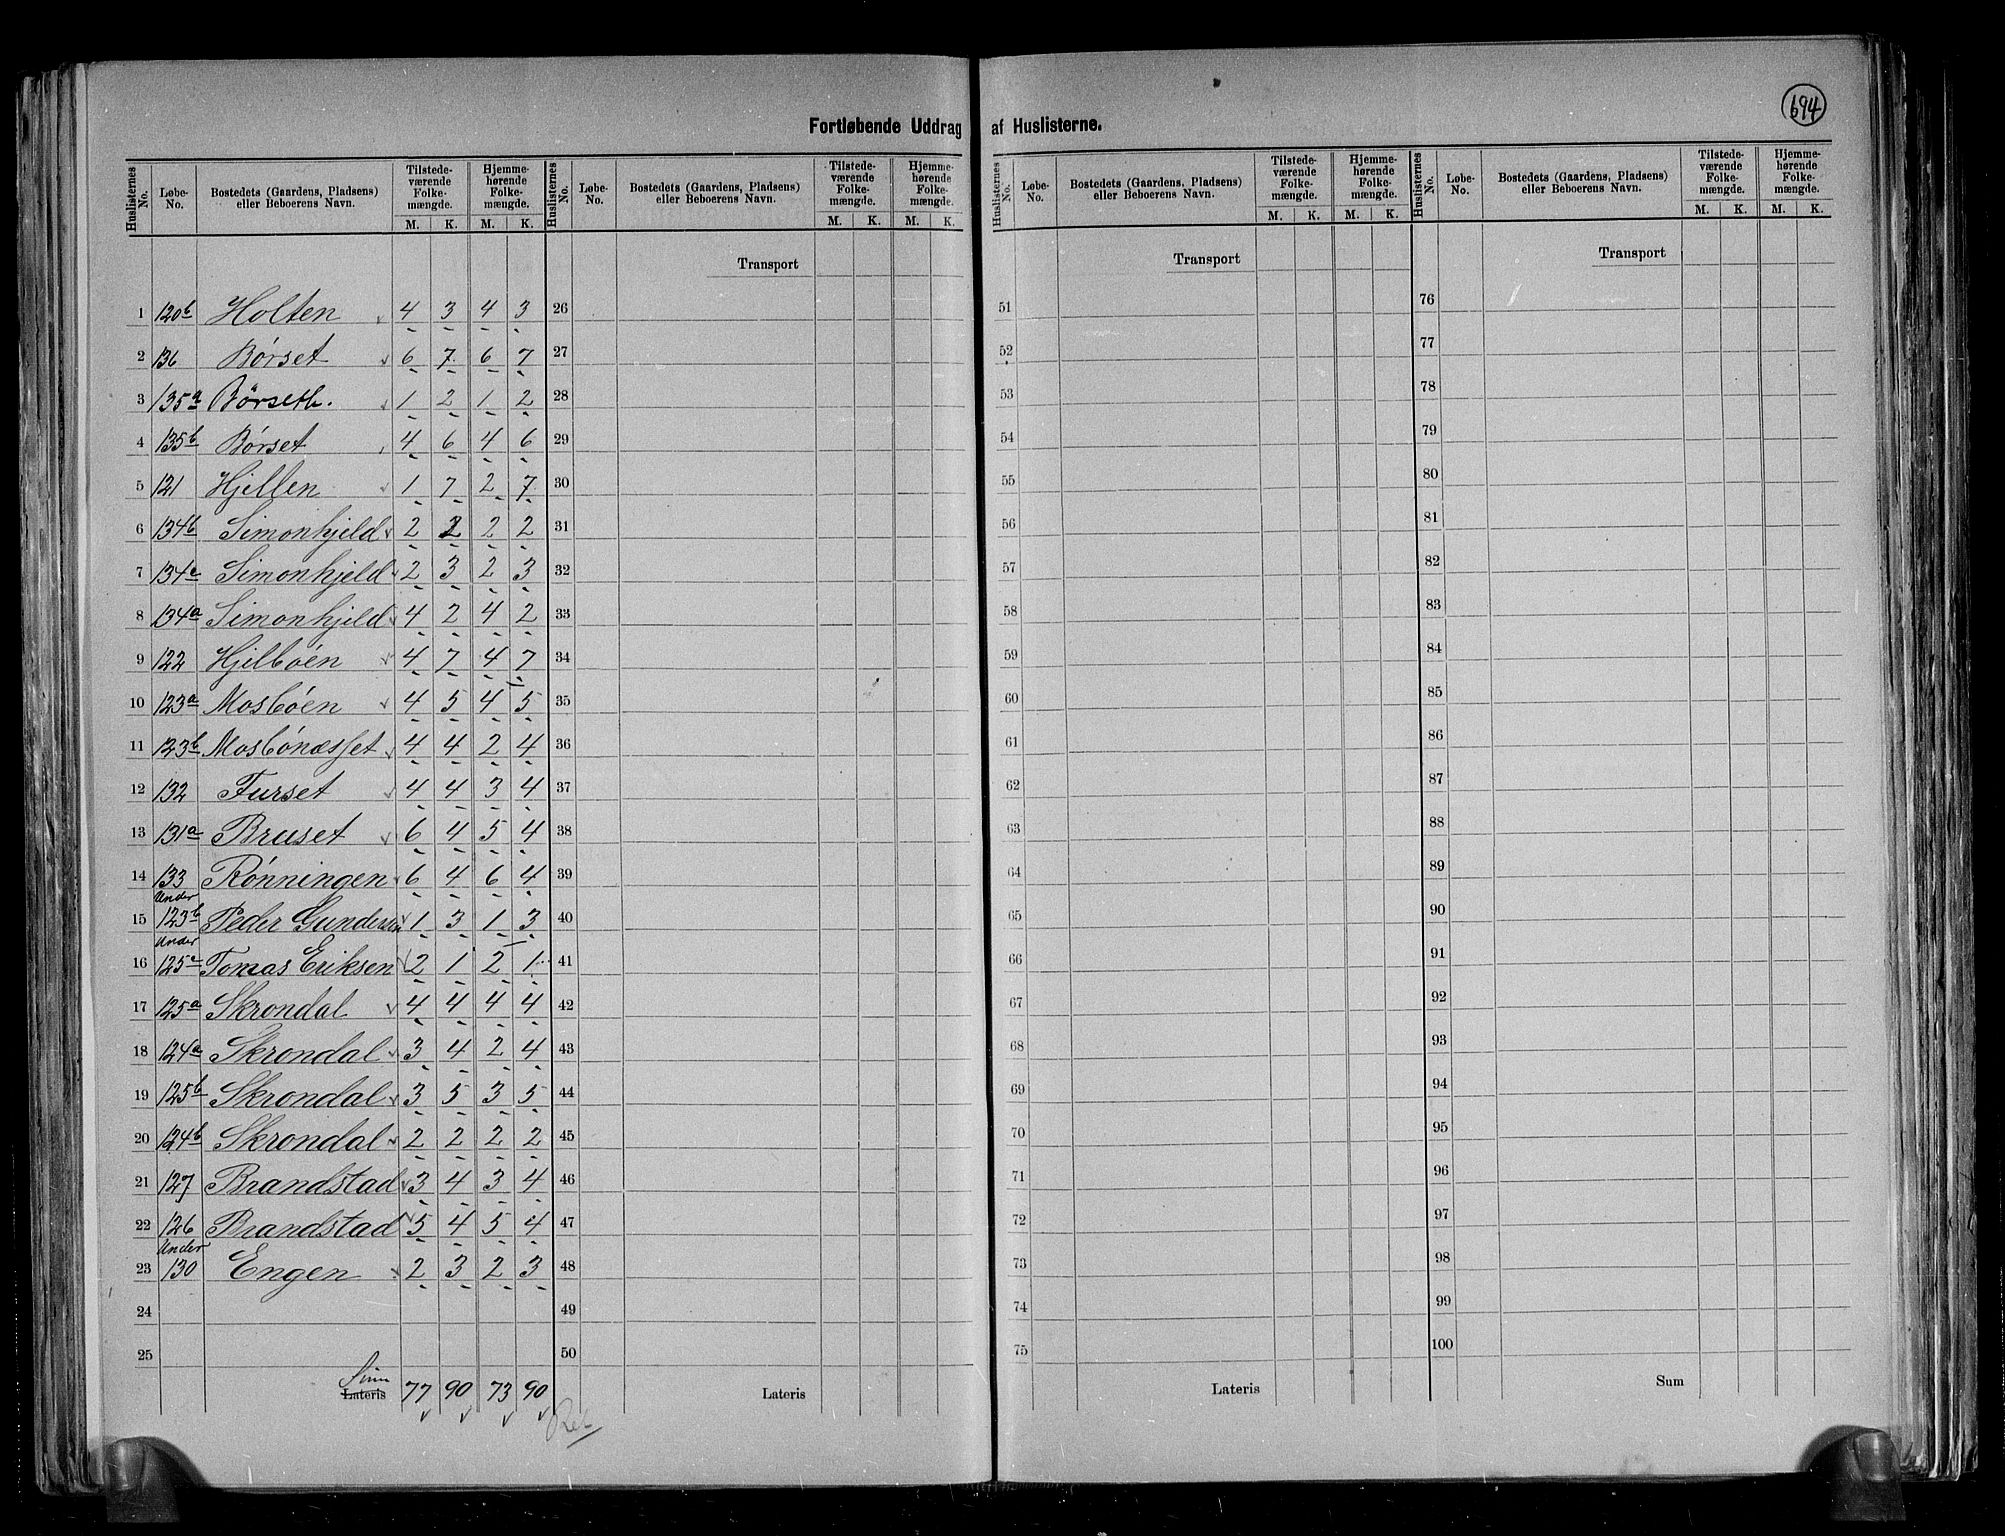 694
Fortløbende Uddrag af Huslisterne.
Huslisternes No. Løbe-No. Bostedets (Gaardens, Pladsens) eller Beboerens Navn. Tilstedeværende Folkemængde. M. K. Hjemmehørende Folkemængde. M. K.
Huslisternes No. Løbe-No. Bostedets (Gaardens, Pladsens) eller Beboerens Navn. Tilstedeværende Folkemængde. M. K. Hjemmehørende Folkemængde. M. K.
Huslisternes No. Løbe-No. Bostedets (Gaardens, Pladsens) eller Beboerens Navn. Tilstedeværende Folkemængde. M. K. Hjemmehørende Folkemængde. M. K.
Huslisternes No. Løbe-No. Bostedets (Gaardens, Pladsens) eller Beboerens Navn. Tilstedeværende Folkemængde. M. K. Hjemmehørende Folkemængde. M. K.
Transport Transport Transport
1 120b Holten 4 3 4 3 26 51 76
2 136 Børset 6 7 6 7 27 52 77
3 135a Børseth. 1 2 1 2 28 53 78
4 135b Børset 4 6 4 6 29 54 79
5 121 Hjellen 1 7 2 7 30 55 80
6 134b Simonhjeld 2 2 2 2 31 56 81
7 134c Simonhjeld 2 3 2 3 32 57 82
8 134a Simonhjeld 4 2 4 2 33 58 83
9 122 Hjelbøen 4 7 4 7 34 59 84
10 123a Mosbøen 4 5 4 5 35 60 85
11 123b Mosbønæsset 4 4 2 4 36 61 86
12 132 Furset 4 4 3 4 37 62 87
13 131a Bruset 6 4 5 4 38 63 88
14 133 Rønningen 6 4 6 4 39 64 89
15 Under 123b Peder Gundersen 1 3 1 3 40 65 90
16 Under 125c Tomas Eriksen 2 1 2 1 41 66 91
17 125a Skrondal 4 4 4 4 42 67 92
18 124a Skrondal 3 4 2 4 43 68 93
19 125b Skrondal 3 5 3 5 44 69 94
20 124b Skrondal 2 2 2 2 45 70 95
21 127 Brandstad 3 4 3 4 46 71 96
22 126 Brandstad 5 4 5 4 47 72 97
23 Under 130 Engen 2 3 2 3 48 73 98
24 49 74 99
25 50 75 100
Sum
Lateris 77 90 73 90 Lateris Lateris Sum